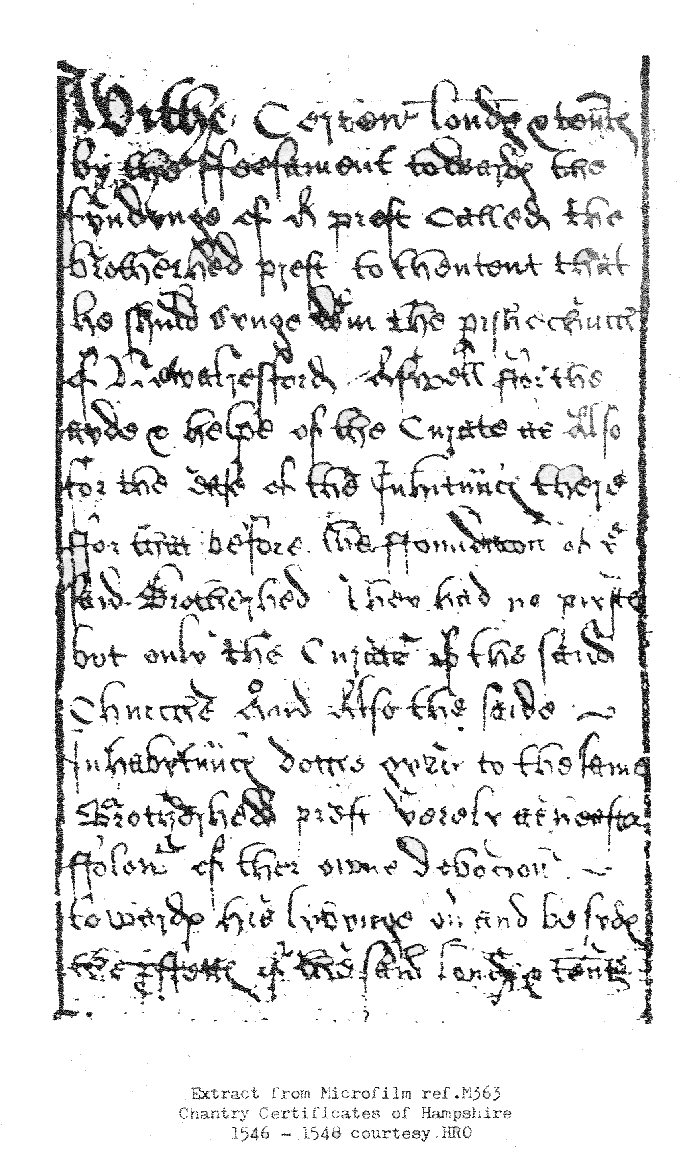 Withe Certen londes & tente
by the ffeofament towards the
fyndynge of A prest Called the
brotherhed prest to thentent that
he shuld synge wtin the
of Alresford Aswell for the
ayde & helpe of the Curate as Also
for the ease of the Inhitunts there
ffor that before the ffoundacon of ye
said Brotherhed They had no
but only the Curate of the said
Churche And Also the saide
Inhabytants dothe to the same
Brotherhed prest yerely
of ther owne devocion
towards his lyvinge and besyds
the of the said londs & tents
Extract from Microfilm ref.M363
Chantry Certificates of Hampshire
1546 - 1548 courtesy HRO